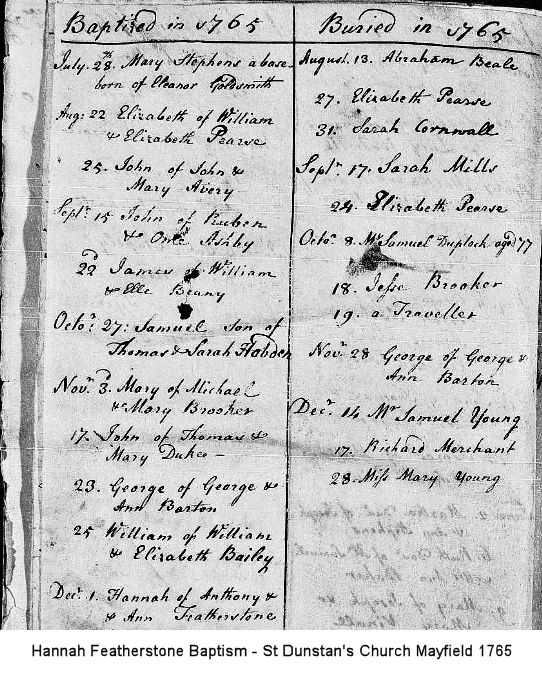 Baptized in 1765
July. 28.th Mary Stephens a base
born of Eleanor Goldsmith
Aug: 22 Elizabeth of William
& Elizabeth Pearse
25. John of John &
Mary Avery
Septr. 15 John of Ruben
& Ashby
22d James of William
& Elle Beany
Octor. 27: Samuel son of
Thomas & Sarah Hobden
Novr. 3. Mary of Michael
& Mary Brooker
17. John of Thomas &
Mary Duke
23. George of George &
Ann Barton
25 William of William
& Elizabeth Bailey
Decr. 1. Hannah of Anthony &
& Ann Featherstone
Buried in 1765
August. 13. Abraham Beale
27. Elizabeth Pearse
31. Sarah Cornwall
Septr. 17. Sarah Mills
24. Elizabeth Pearse
Octor. 8. Mr Samuel Duplock aged 77
18. Jesse Brooker
19. a Traveller
Novr. 28 George of George &
Ann Barton
Decr. 14 Mr Samuel Young
17. Richard Merchant
28. Miss Mary Young
Hannah Featherstone Baptism - St Dunstan's Church Mayfield 1765